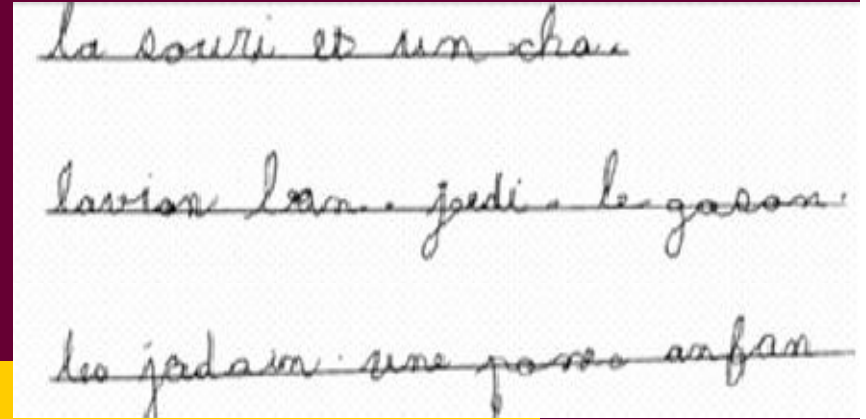 la souri et un cha.
lavion lan. jedi. le gason.
les jadain. une pone. anfan